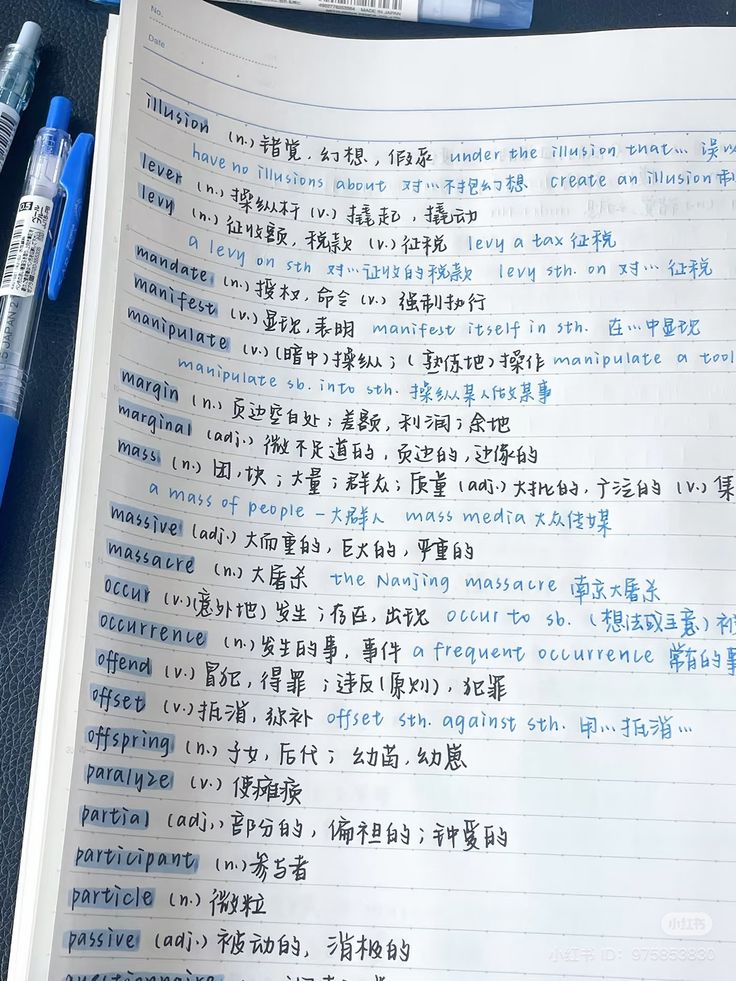 MADE IN JAPAN
No.
Date
illusion (n.) 错觉, 幻想, 假象 under the illusion that… 误以
have no illusions about 对…不抱幻想 create an illusion
lever (n.) 操纵杆 (v.) 撬起, 撬动
levy (n.) 征收额, 税款 (v.) 征税 levy a tax 征税
a levy on sth 对…征收的税款 levy sth. on 对… 征税
mandate (n.) 授权, 命令 (v.) 强制执行
manifest (v.) 显现, 表明 manifest itself in sth. 在…中显现
manipulate (v.) (暗中)操纵; (熟练地)操作 manipulate a tool
manipulate sb. into sth. 操纵某人做某事
margin (n.) 页边空白处; 差额, 利润; 余地
marginal (adj.) 微不足道的, 页边的, 边缘的
mass (n.) 团, 块; 大量; 群众; 质量 (adj.) 大批的, 广泛的 (v.) 集
a mass of people 一大群人 mass media 大众传媒
massive (adj.) 大而重的, 巨大的, 严重的
massacre (n.) 大屠杀 the Nanjing massacre 南京大屠杀
occur (v.) (意外地) 发生; 存在, 出现 occur to sb. (想法或主意) 被
occurrence (n.) 发生的事, 事件 a frequent occurrence 常有的事
offend (v.) 冒犯, 得罪; 违反(原则), 犯罪
offset (v.) 抵消, 弥补 offset sth. against sth. 用…抵消…
offspring (n.) 子女, 后代; 幼苗, 幼崽
paralyze (v.) 使瘫痪
partial (adj.) 部分的, 偏袒的; 钟爱的
participant (n.) 参与者
particle (n.) 微粒
passive (adj.) 被动的, 消极的
questionnaire
小红书
小红书 ID: 975853830